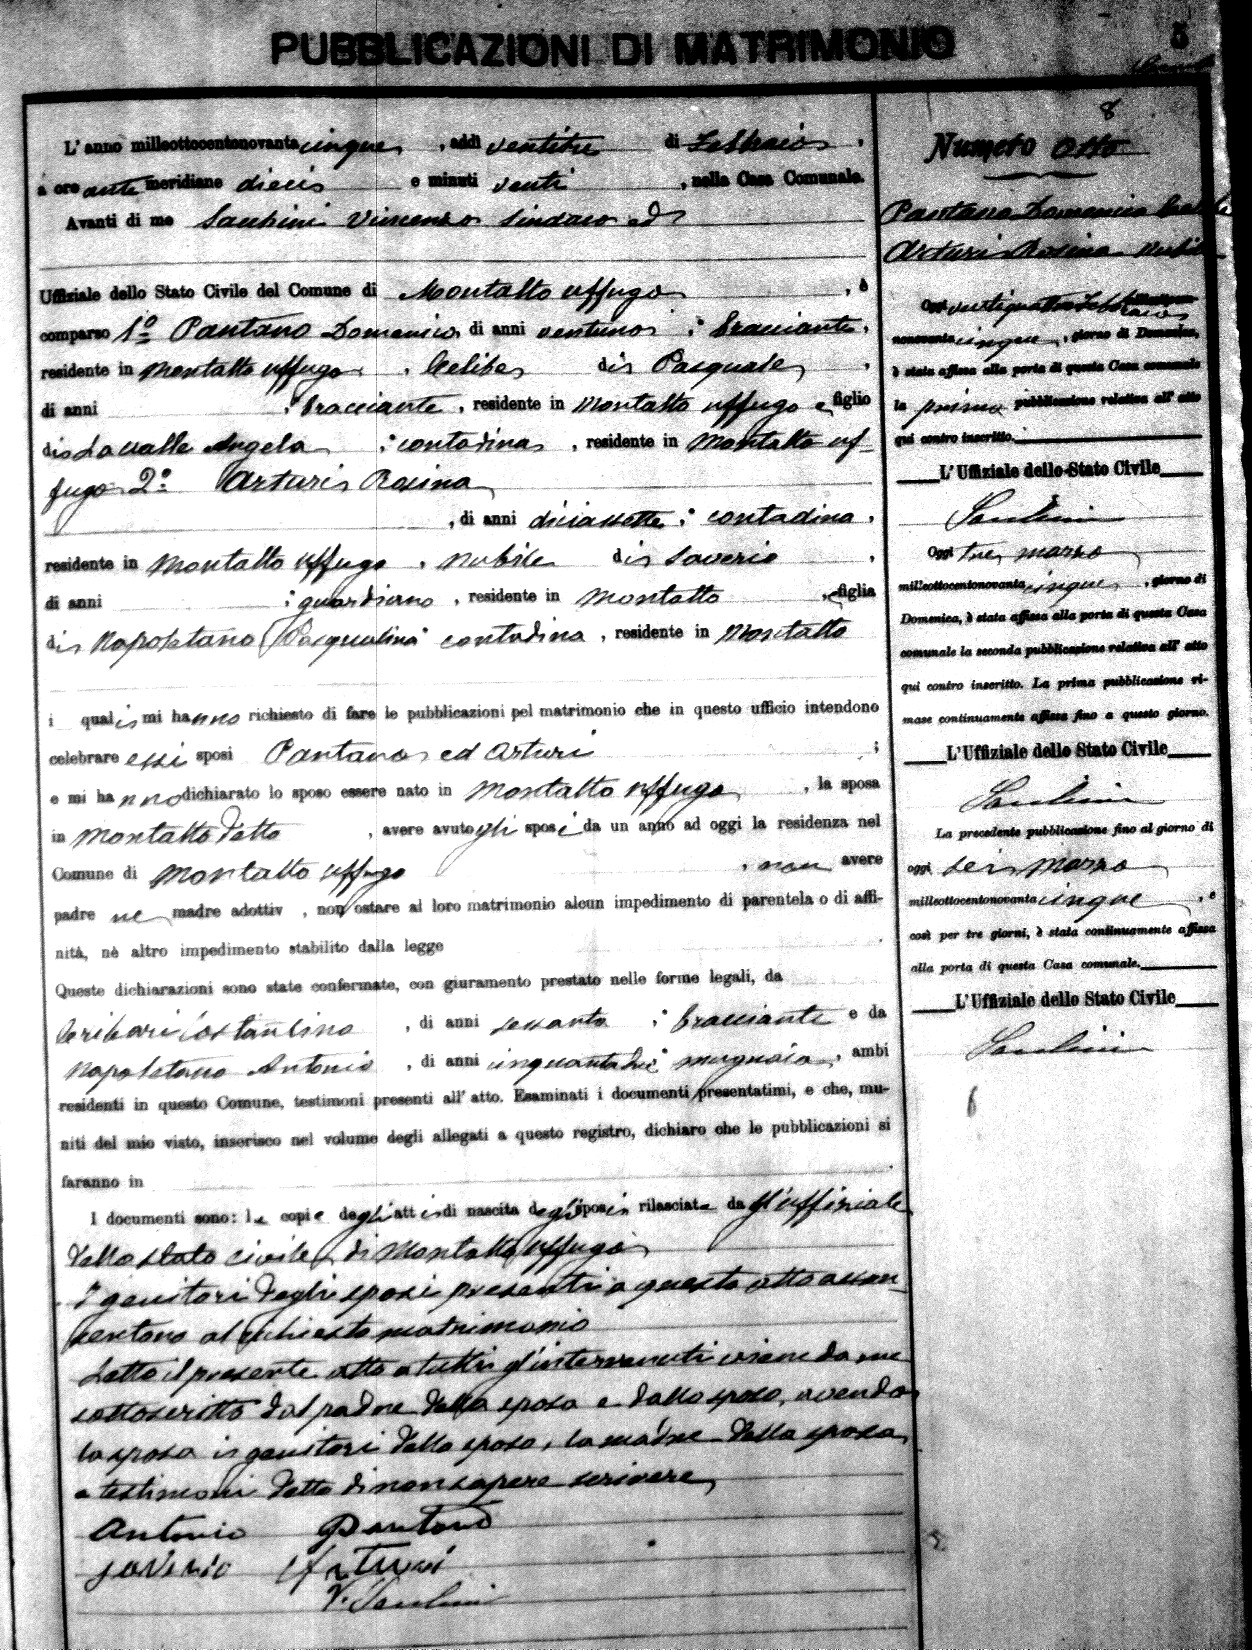 PUBBLICAZIONI DI MATRIMONIO
5
L'anno milleottocentonovantacinque, addì ventitre di Febbraio,
a ore ante meridiane dieci e minuti venti, nella Casa Comunale.
Avanti di me Vincenzo Sindaco ed
Uffiziale dello Stato Civile del Comune di Montalto Uffugo, è
comparso 1º Pantano Domenico, di anni ventuno; bracciante,
residente in Montalto Uffugo, Celibe, di Pasquale,
di anni ; bracciante, residente in Montalto Uffugo e figlio
di Lavalle Angela ; contadina, residente in Montalto Uf-
fugo 2º Arturi Rosina
, di anni diciassette; contadina,
residente in Montalto Uffugo, nubile di Saverio,
di anni ; guardiano, residente in Montalto, e figlia
di Napoletano Pasqualina contadina, residente in Montalto
i quali mi hanno richiesto di fare le pubblicazioni pel matrimonio che in questo ufficio intendono
celebrare essi sposi Pantano ed Arturi ;
e mi hanno dichiarato lo sposo essere nato in Montalto Uffugo, la sposa
in Montalto detto, avere avuto gli sposi da un anno ad oggi la residenza nel
Comune di Montalto Uffugo, non avere
padre ne madre adottiv , non ostare al loro matrimonio alcun impedimento di parentela o di affi-
nità, nè altro impedimento stabilito dalla legge
Queste dichiarazioni sono state confermate, con giuramento prestato nelle forme legali, da
Costantino, di anni sessanta; bracciante e da
Napoletano Antonio, di anni mugnaio, ambi
residenti in questo Comune, testimoni presenti all'atto. Esaminati i documenti presentatimi, e che, mu-
niti del mio visto, inserisco nel volume degli allegati a questo registro, dichiaro che le pubblicazioni si
faranno in
I documenti sono: le copie degli atti di nascita degli sposi rilasciate da gl'uffiziale
dello stato civile di Montalto Uffugo
I genitori degli sposi presenti a questo atto accon-
sentono al richiesto matrimonio
Letto il presente atto a tutti gl'intervenuti viene da me
sottoscritto dal padre della sposa e dallo sposo, avendo
la sposa i genitori dello sposo, la madre della sposa,
e testimoni detto di non sapere scrivere
Antonio Pantano
Saverio Arturi
8
Numero Otto
Pantano Domenico
Arturi Rosina nubile
Oggi ventiquattro Febbraio
novantacinque, giorno di Domenica,
è stata affissa alla porta di questa Casa comunale
la prima pubblicazione relativa all'atto
qui contro inscritto.
L'Uffiziale dello Stato Civile
Oggi tre marzo
milleottocentonovantacinque, giorno di
Domenica, è stata affissa alla porta di questa Casa
comunale la seconda pubblicazione relativa all'atto
qui contro inscritto. La prima pubblicazione ri-
mase continuamente affissa fino a questo giorno.
L'Uffiziale dello Stato Civile
La precedente pubblicazione fino al giorno di
oggi sei marzo
milleottocentonovantacinque, e
così per tre giorni, è stata continuamente affissa
alla porta di questa Casa comunale.
L'Uffiziale dello Stato Civile